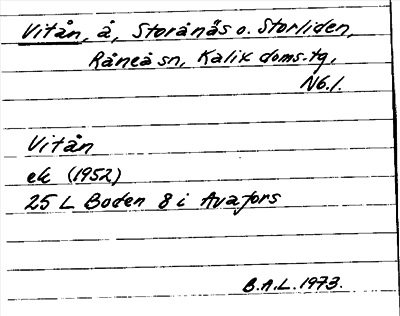 Vitån, å, Storånäs o. Storliden,
Råneå sn, Kalix doms.tg,
Nb.l.
Vitån
ek (1952)
25 L Boden 8 i Avafors
B.A.L. 1973.